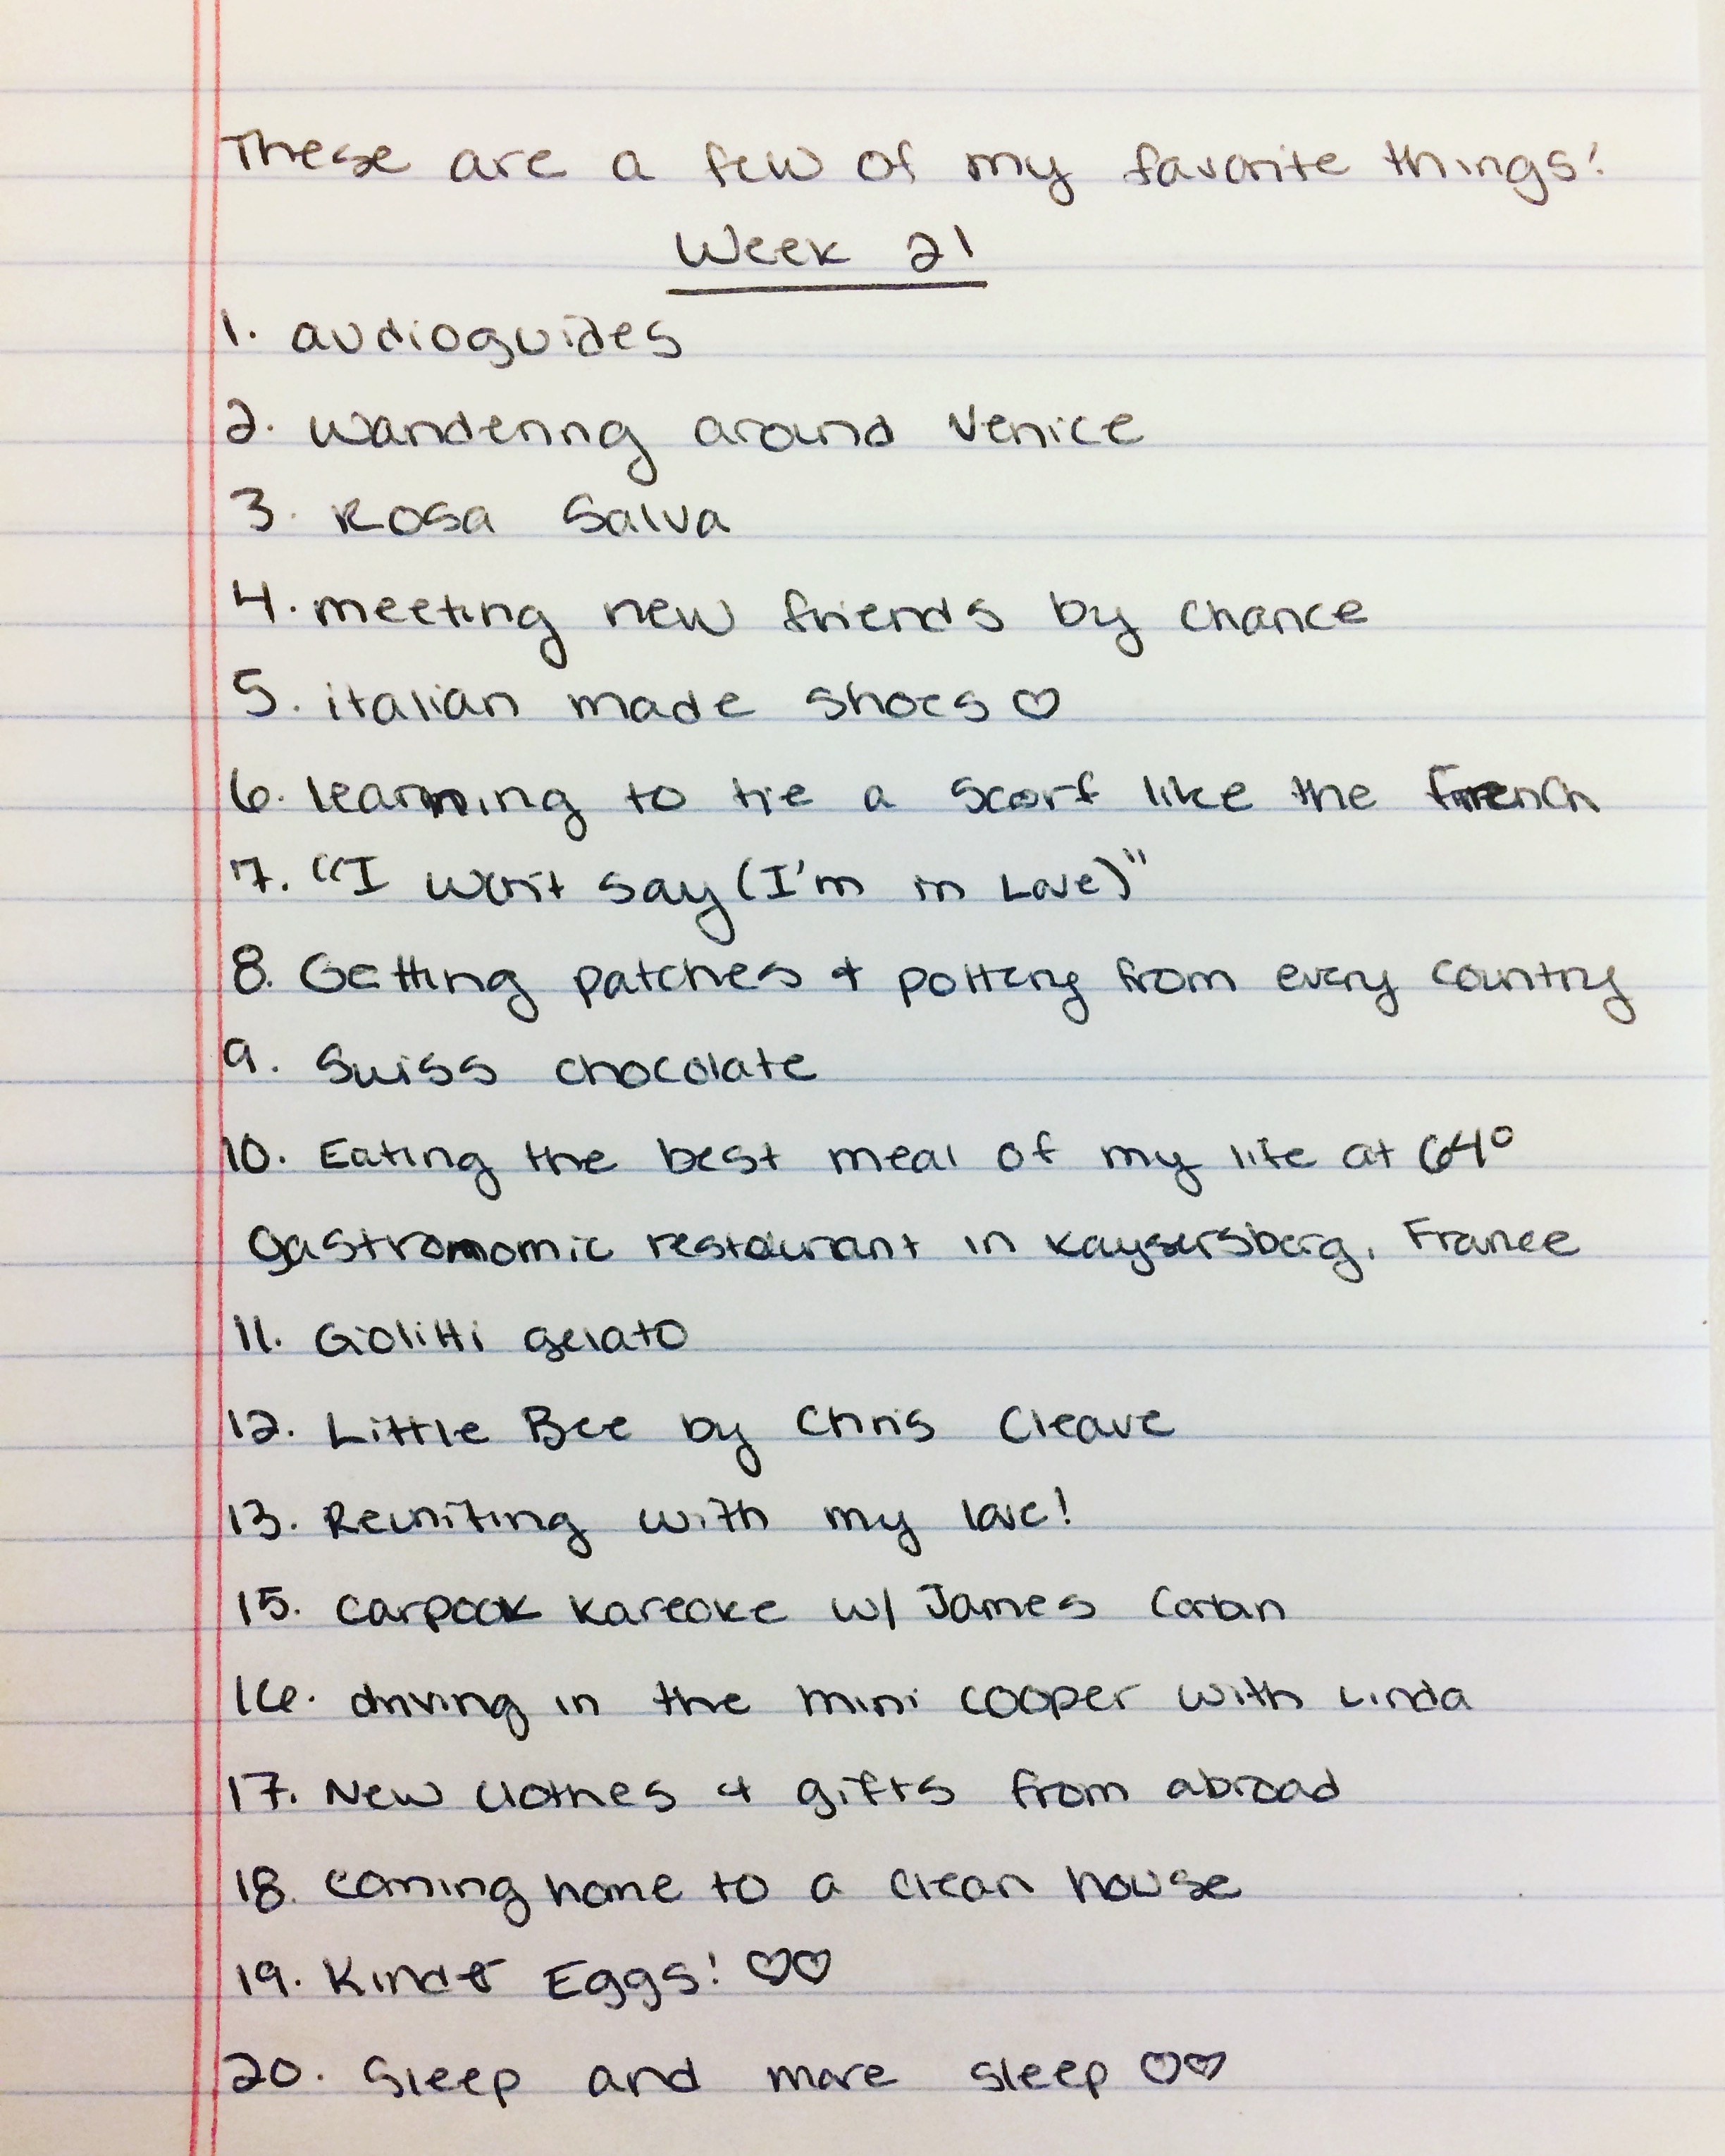 These are a few of my favorite things!
Week 21
1. audioguides
2. wandering around Venice
3. Rosa Salva
4. meeting new friends by chance
5. italian made shoes ♡
6. learning to tie a scarf like the French
7. "I won't say (I'm in Love)"
8. Getting patches & pottery from every country
9. Swiss chocolate
10. Eating the best meal of my life at 64°
gastronomic restaurant in Kaysersberg, France
11. Giolitti gelato
12. Little Bee by Chris Cleave
13. Reuniting with my love!
15. carpook kareoke w/ James Corban
16. driving in the mini cooper with Linda
17. New clothes & gifts from abroad
18. coming home to a clean house
19. Kinder Eggs! ♡♡
20. Sleep and more sleep ♡♡